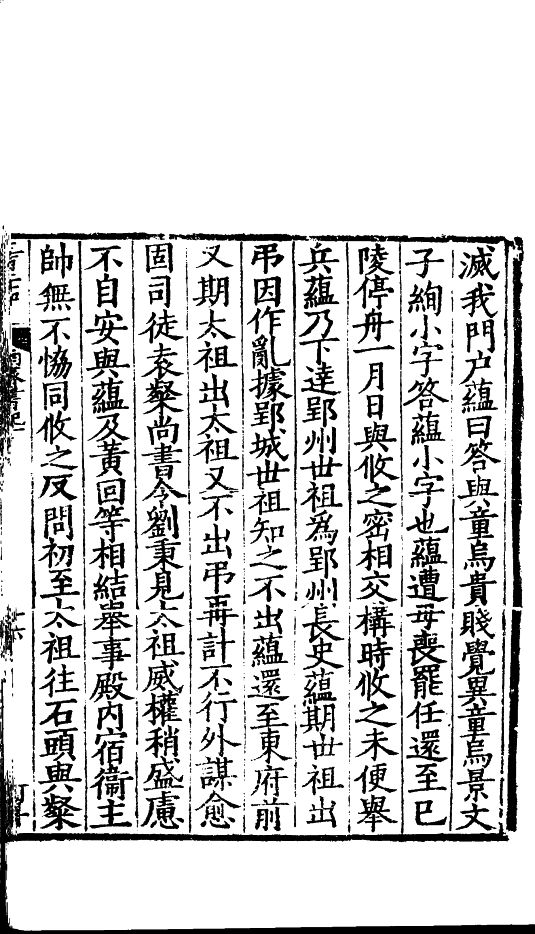 滅我門户藴曰答與童烏貴賤覺異童烏景文
子絢小字答藴小字也藴遭母喪罷任還至巴
陵停舟一月日與攸之密相交構時攸之未便舉
兵藴乃下達郢州世祖爲郢州長史藴期世祖出
弔因作亂據郢城世祖知之不出藴還至東府前
又期太祖出太祖又不出弔再計不行外謀愈
固司徒袁粲尚書令劉秉見太祖威權稍盛慮
不自安與藴及黃回等相結舉事殿内宿衛主
帥無不恊同攸之反問初至太祖往石頭與粲